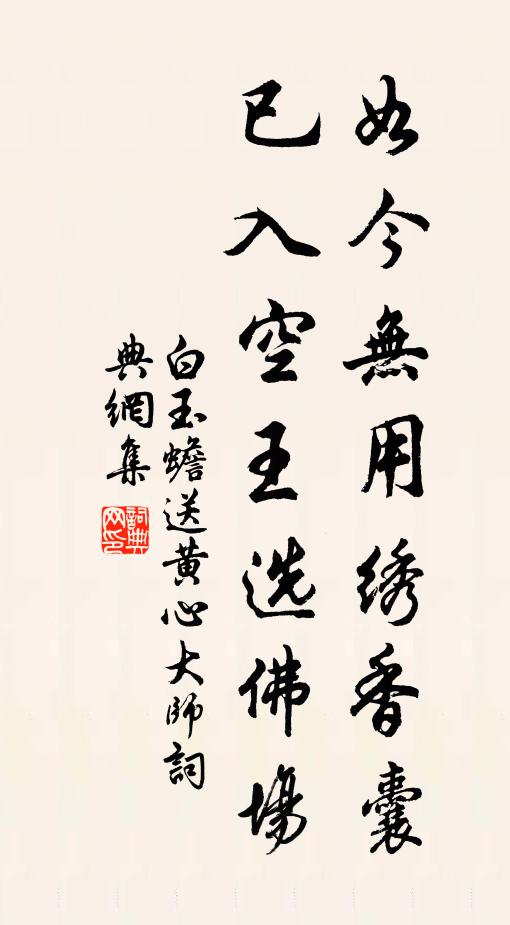 如今無用綉香囊
已入空王选佛場
白玉蟾送黄心大師詞
典網集
詞典网印